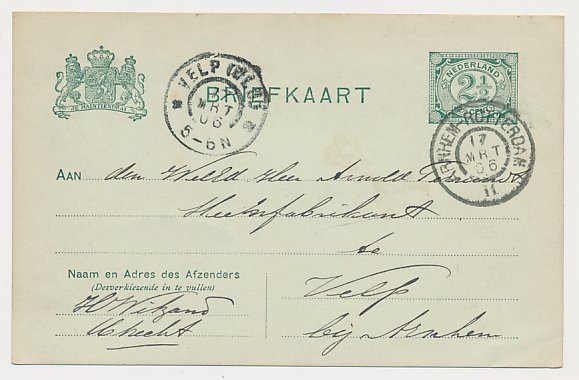 JE MAINTIENDRAI
BRIEFKAART
NEDERLAND
2½
CENT
VELP (GLD)
MRT
06
5-6N
ARNHEM-ROTTERDAM
17
MRT
06
II
AAN den WelEd. Heer Arnold
te
Velp
bij Arnhem
Naam en Adres des Afzenders
(Desverkiezende in te vullen)
Utrecht